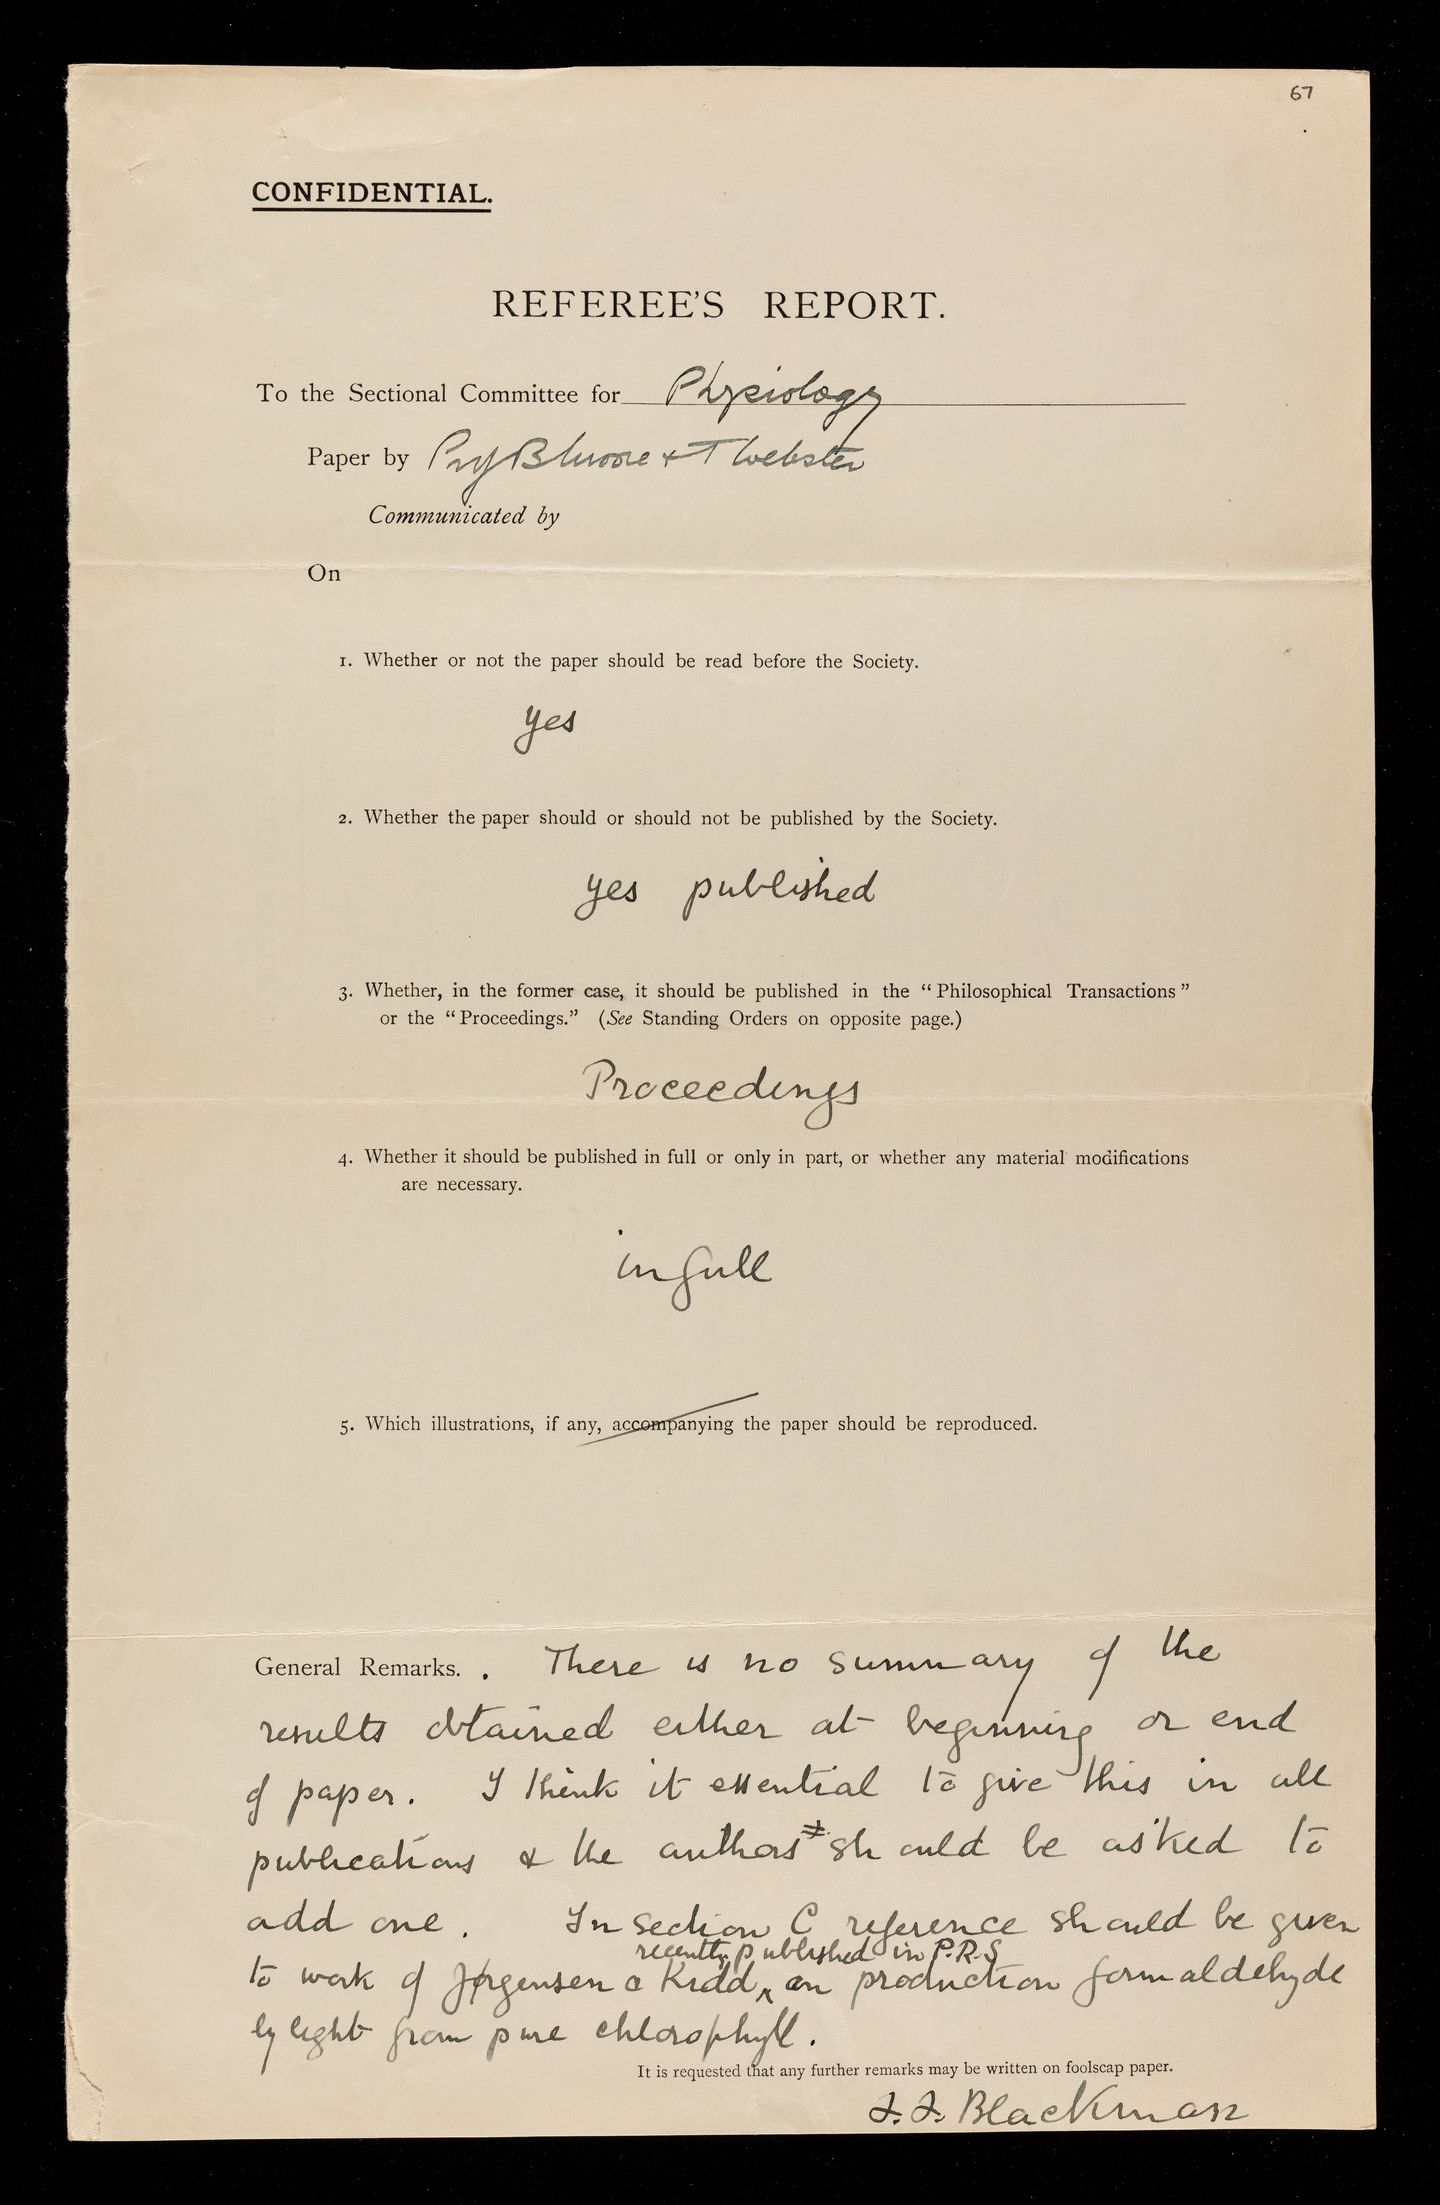 67
CONFIDENTIAL.
REFEREE'S REPORT.
To the Sectional Committee for Physiology
Paper by Prof B Moore & T Webster
Communicated by
On
1. Whether or not the paper should be read before the Society.
yes
2. Whether the paper should or should not be published by the Society.
yes published
3. Whether, in the former case, it should be published in the "Philosophical Transactions"
or the "Proceedings." (See Standing Orders on opposite page.)
Proceedings
4. Whether it should be published in full or only in part, or whether any material modifications
are necessary.
in full
5. Which illustrations, if any, accompanying the paper should be reproduced.
General Remarks. . There is no summary of the
results obtained either at beginning or end
of paper. I think it essential to give this in all
publications & the authors should be asked to
add one. In section C reference should be given
recently published in P.R.S
to work of Jørgensen & Kidd, on production formaldehyde
by light from pure chlorophyll.
It is requested that any further remarks may be written on foolscap paper.
F. F. Blackman